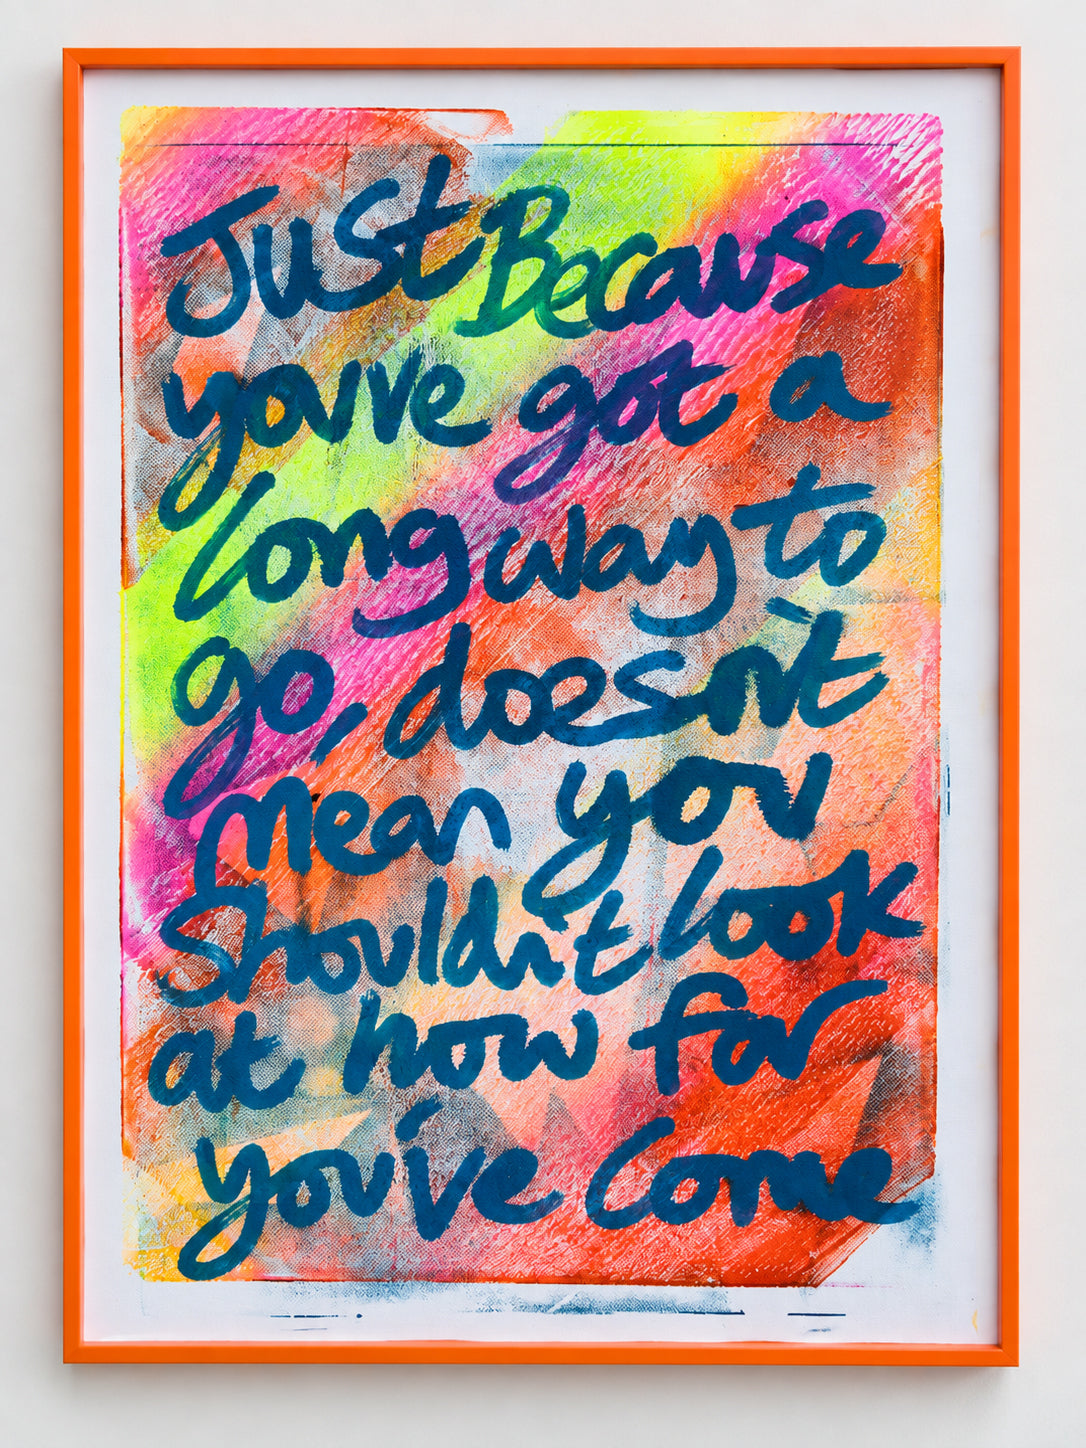 Just Because
you've got a
long way to
go, doesn't
mean you
shouldn't look
at how far
you've come